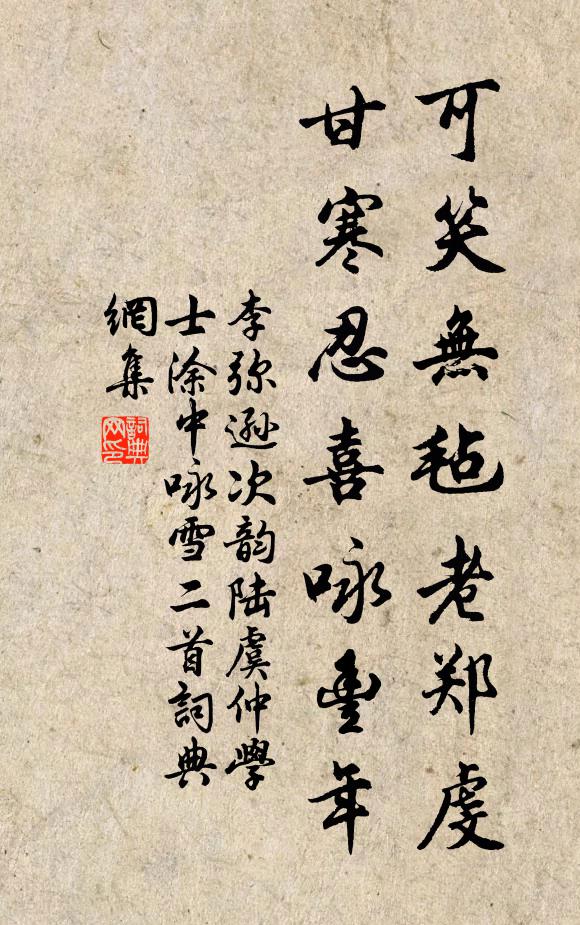 可笑無毡老郑虔
甘寒忍喜咏豐年
李弥遜次韵陆虞仲學
士涂中咏雪二首詞典
網集
詞典
网印